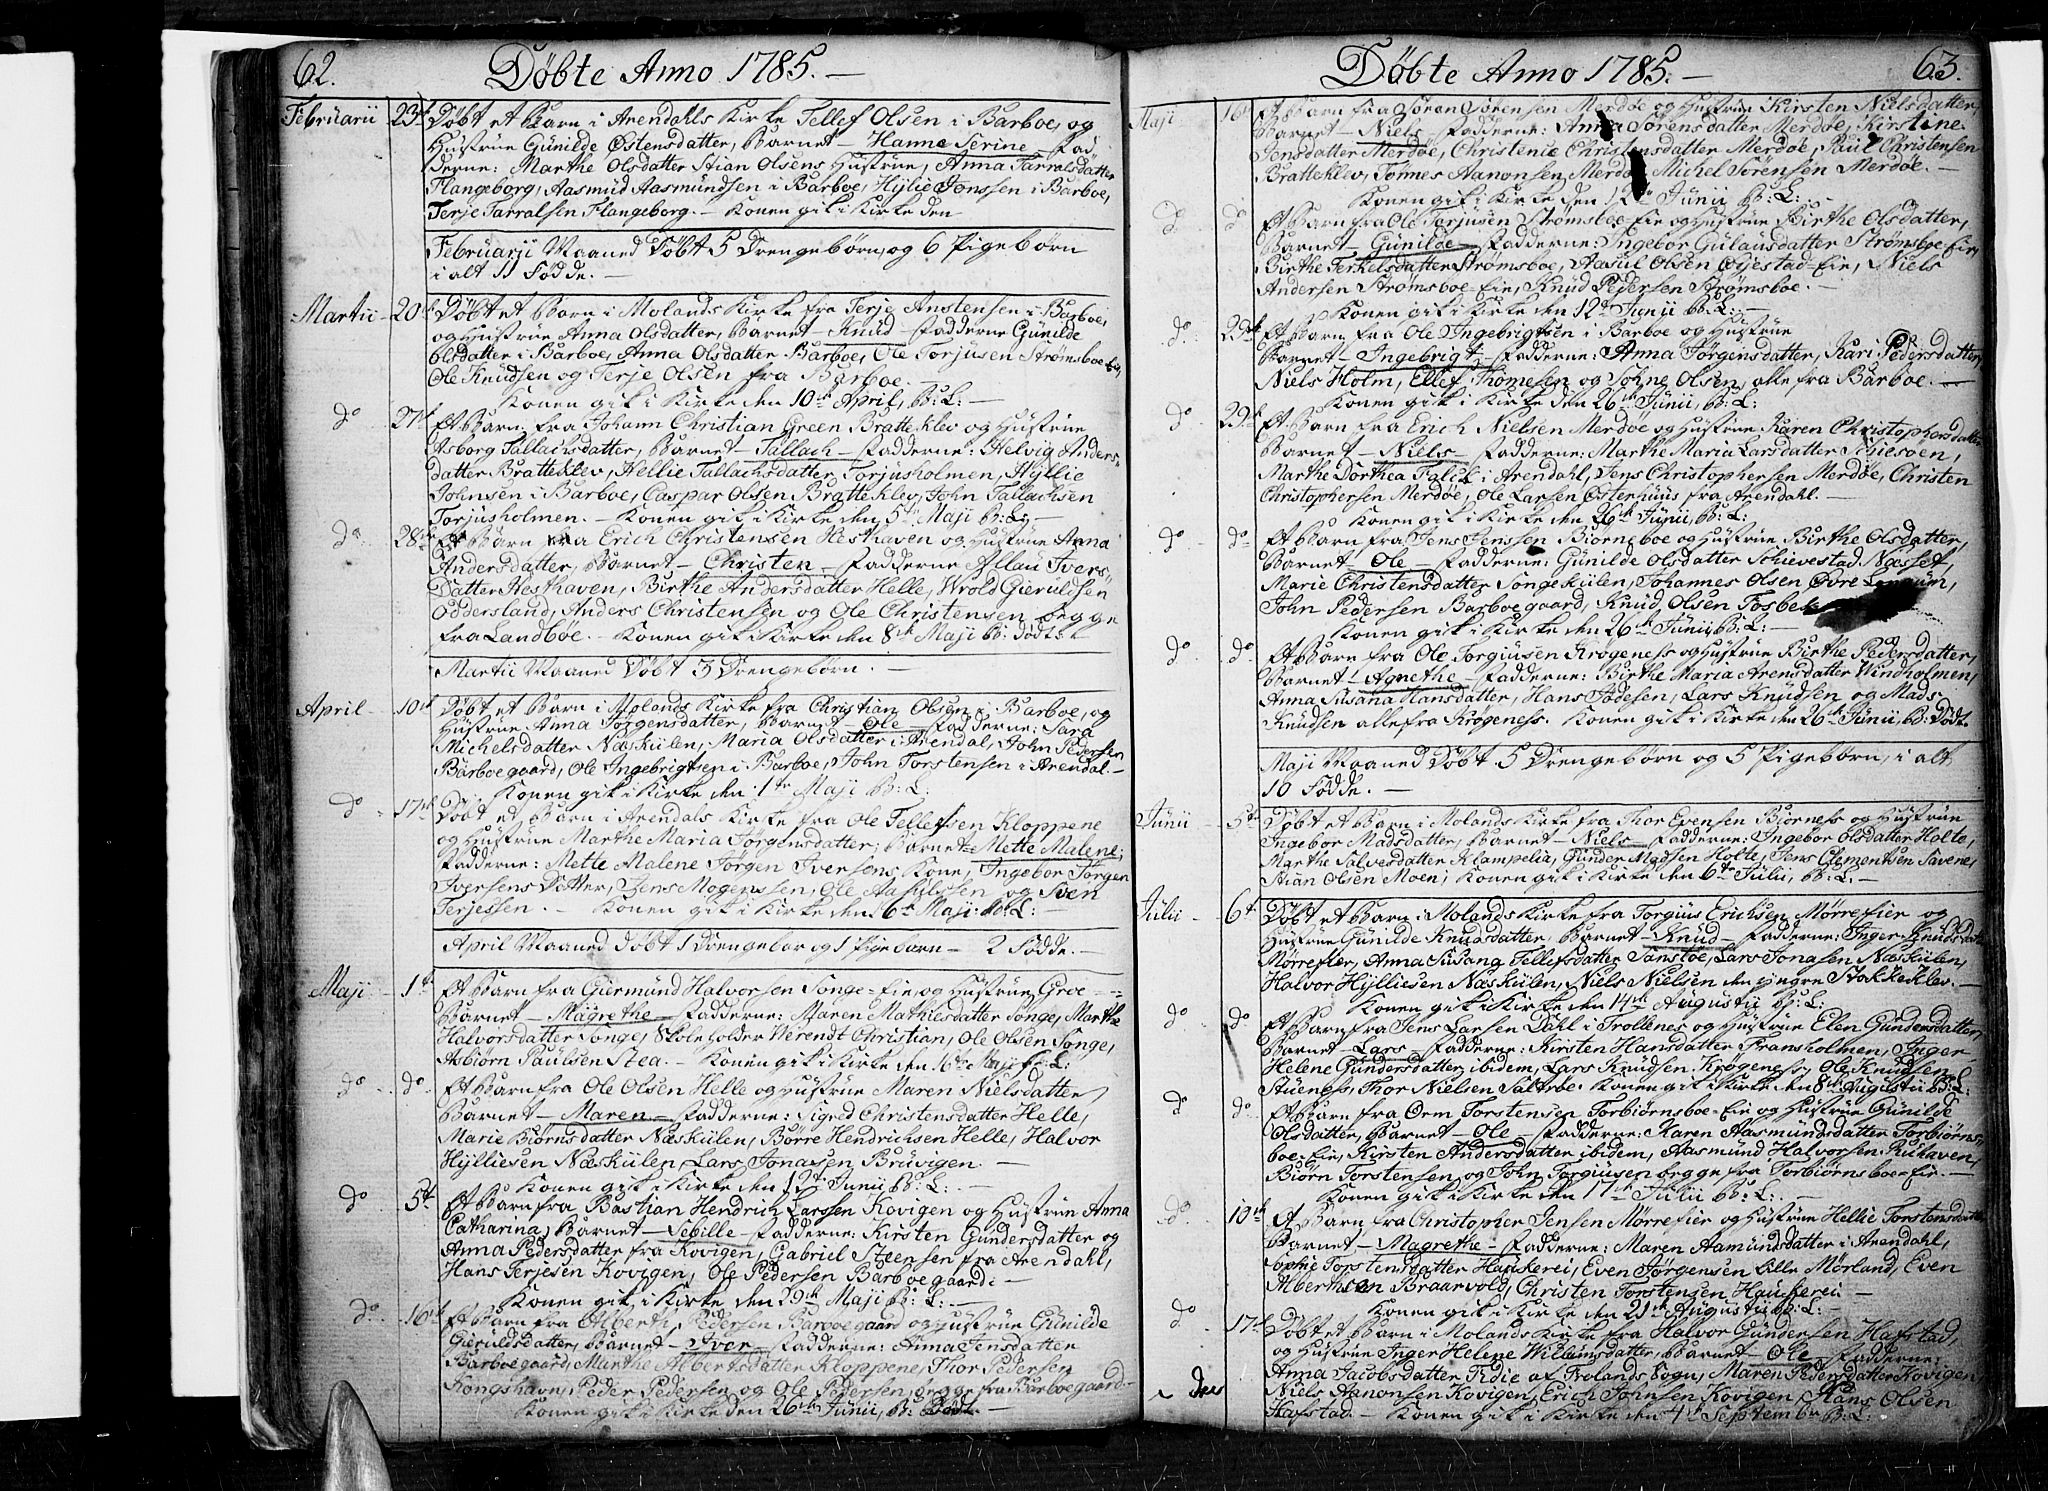 62.
Døbte Anno 1785. —
Februarii 23de Døbt et Barn i Arendahls Kirke Tellef Olsen i Barboe, og
Hustrüe Günilde Østensdatter, Barnet — Hanne Serine — Fad-
derne: Marthe Olsdatter Stian Olsens Hustrue, Anna Tarralsdatter
Flangeborg, Aasmud Aasmündsen i Barboe, Hylie Jonssen i Barboe,
Terje Tarralsen Flangeborg. — Konen gik i Kirke den
Februarii Maaned Døbt 5 Drengebørn, og 6 Pigebørn
i alt 11 Fødde. —
Martii — 20de Døbt et Barn i Molands Kirke fra Terje Anstensen i Barboe,
og Hustrüe Anna Olsdatter, Barnet — Knud — Fadderne Günilde
Olsdatter i Barboe, Anna Olsdatter Barboe, Ole Torjusen Strømsboe Eie,
Ole Knudsen og Terje Olsen fra Barboe. —
Konen gik i Kirke den 10de April, B: L: —
do 27de Et Barn fra Johann Christian Green Bratteklev og Hustrüe
Asborg Tallachsdatter, Barnet — Tallach — Fadderne: Helvig Anders-
datter Bratteklev, Nellie Tallachsdatter Torjusholmen, Hyllie
Johnsen i Barboe, Caspar Olsen Bratteklev, John Tallachsen
Torjusholmen. — Konen gik i Kirke den 5te Maji B: L: —
do 28de Et Barn fra Erich Christensen Hesthaven og Hustrüe Anna
Andersdatter, Barnet — Christen — Fadderne Aslau Ivers-
Datter Hesthaven, Birthe Andersdatter Helle, Wrold Gieruldsen
Odderstand, Anders Christensen og Ole Christensen begge
fra Landbøe. — Konen gik i Kirke den 8de Maji B: Dødt
Martii Maaned Døbt 3 Drengebørn. —
April — 10de Døbt et Barn i Molands Kirke fra Christian Olsen i Barboe, og
Hustrüe Anna Jørgensdatter, Barnet — Ole — Fadderne: Sara
Michelsdatter Næskiilen, Maria Olsdatter i Arendal, John Pedersen
Barboegaard, Ole Ingebrigtsen i Barboe, John Torstensen i Arendal. —
Konen gik i Kirke den 1te Maji B: L:
do 17de Døbt et Barn i Arendals Kirke fra Ole Tellefsen Kloppene
og Hustrüe Marthe Maria Jørgensdatter; Barnet = Mette Malene;
Fadderne: Mette Malene Jørgen Iversens Kone, Ingebor Jørgen
Iversens Datter, Jens Mogenssen, Ole Aasulssen og Sven
Terjessen. — Konen gik i Kirke den 16de Maji. B: L: —
April Maaned Døbt 1 Drengebar og 1 Pigebarn — 2 Fødde. —
Maji — 1te Et Barn fra Giermund Halvorsen Songe-Eie, og Hustrüe Groe
Barnet — Magrethe — Fadderne: Maren Mathiesdatter Songe, Marthe
Halvorsdatter Songe, Skoleholder Verendt Christian, Ole Olsen Songe,
Asbiørn Paulsen Stea. — Konen gik i Kirke den 16de Maji B: L:
do do Et Barn fra Ole Olsen Helle og Hustrüe Maren Nielsdatter
Barnet — Maren — Fadderne: Sigred Christensdatter Helle,
Marie Biørnsdatter Næskiilen, Børre Hendrichsen Helle, Halvor
Hylliesen Næskiilen, Lars Jonasen Brüvigen. —
Konen gik i Kirke den 12te Junii B: L: —
do 5te Et Barn fra Bastian Hendrich Larssen Kovigen og Hustrüe Anna
Catharina, Barnet — Sebille — Fadderne: Kirsten Gundersdatter og
Anna Pedersdatter fra Kovigen, Gabriel Steensen fra Arendahl,
Hans Terjesen Kovigen, Ole Pedersen Barboegaard: —
Konen gik i Kirke den 29de Maji B: L: —
do 16de Et Barn fra Alberth Pedersen Barboegaard og Hustrüe Günilde
Gieruldsdatter, Barnet — Iver — Fadderne: Anna Jensdatter
Barboegaard, Marthe Albertsdatter Kloppene, Thor Pedersen
Kongshavn, Peder Pedersen og Ole Pedersen, begge fra Barboegaard —
Konen gik i Kirke den 26de Junii, B: Dødt
Døbte Anno 1785. —
63.
Maji 16de Et Barn fra Søren Sørensen Merdøe og Hustrüe Kirsten Nielsdatter,
Barnet — Niels — Fadderne: Anna Sørensdatter Merdøe, Kirstine
Jensdatter Merdøe, Christenie Christensdatter Merdøe, Poul Christensen
Bratteklev, Tønnes Aanonsen Merdøe, Michel Sørensen Merdøe. —
Konen gik i Kirke den 12te Junii B: L: —
do do Et Barn fra Ole Torjusen Strømsboe-Eie og Hustrüe Birthe Olsdatter,
Barnet — Günilde — Fadderne: Ingebor Gulausdatter Strømsboe Eie,
Birthe Terkelsdatter Strømsboe, Aasul Olsen Øijestad-Eie, Niels
Andersen Strømsboe-Eie, Knud Pedersen Strømsboe. —
Konen gik i Kirke den 12te Junii B: L: —
do 29de Et Barn fra Ole Ingebrigtsen i Barboe og Hustrüe
Barnet — Ingebrigt — Fadderne: Anna Jørgensdatter, Kari Pedersdatter,
Niels Holm, Ellef Thomesen og Søhne Olsen, alle fra Barboe. —
Konen gik i Kirke den 26de Junii, B: L:
do 29de Et Barn fra Erich Nielsen Merdøe og Hustrüe Karen Christophersdatter
Barnet — Niels — Fadderne: Marthe Maria Larsdatter Schiesøen,
Marthe Dorthea Falck i Arendahl, Jens Christophersen Merdøe, Christen
Christophersen Merdøe, Ole Larsen Østerhuus fra Arendahl. —
Konen gik i Kirke den 26de Junii, B: L:
do do Et Barn fra Jens Jenssen Biørneboe og Hustrüe Birthe Olsdatter,
Barnet — Ole — Fadderne: Günilde Olsdatter Schievestad Næsset,
Marie Christensdatter Songekiilen, Johannes Olsen Øvre
John Pedersen Barboegaard, Knud Olsen
Konen gik i Kirke den 26de Junii, B: L: —
do do Et Barn fra Ole Torgiusen Krøgeness og Hustrüe Birthe Pedersdatter,
Barnet — Agnethe — Fadderne: Birthe Maria Arensdatter Windholmen,
Anna Susana Hansdatter, Hans Todesen, Lars Knudsen og Mads
Knudsen alle fra Krøgeness. Konen gik i Kirke den 26de Junii, B: Dødt.
Maji Maaned Døbt 5 Drengebørn og 5 Pigebørn, i alt
10 Fødde. —
Junii — 5te Døbt et Barn i Molands Kirke fra Thor Evensen Biørness og Hustrüe
Ingebor Madsdatter, Barnet — Niels — Fadderne: Ingebor Olsdatter Holte,
Marthe Salvesdatter Klampelia, Gunder Madsen Holte, Jens Clementsen Savene,
Stian Olsen Moen; Konen gik i Kirke den 6te Julii, B: L. —
Julii — 6te Døbt et Barn i Molands Kirke fra Torgius Erichsen Mørrefier og
Hustrüe Günilde Knudsdatter, Barnet — Knud — Fadderne: Inger Knudsdatter
Mørrefier, Anna Susang Tellefsdatter Sanstøe, Lars Jonasen Næskiilen,
Halvor Hylliesen Næskiilen, Niels Nielsen den yngre Stokkeklev. —
Konen gik i Kirke den 14de Augustii B: L:
do do Et Barn fra Jens Larsen Dahl i Trollenes og Hustrüe Elen Gundersdatter,
Barnet — Lars — Fadderne: Kirsten Hansdatter Fransholmen, Inger
Helene Gundersdatter ibidem, Lars Knudsen Krøgeness, Ole Knudsen
Stueness, Thor Nielsen Saltrøe. Konen gik i Kirke den 8de Augustii B: L:
do do Et Barn fra Orm Torstensen Torbiørnsboe-Eie og Hustrüe Günilde
Olsdatter, Barnet — Ole — Fadderne: Karen Aasmundsdatter Torbiørns-
boe-Eie, Kirsten Andersdatter ibidem, Aasmund Halvorsen Rüehaven,
Biørn Torstensen, og John Torgiusen begge fra Torbiørnsboe-Eie. —
Konen gik i Kirke den 17de Julii B: L: —
do 10de Et Barn fra Christopher Jensen Mørrefier og Hustrüe Hellie Torstensdatter
Barnet — Magrethe — Fadderne: Maren Aamundsdatter i Arendahl,
Sophie Torstensdatter Hauskerei, Even Jørgensen Lille Mørland, Even
Alberthsen Braarvold, Christen Torstensen Hauskerei —
Konen gik i Kirke den 21de Augustii B: L:
do 17de Døbt et Barn i Molands Kirke fra Halvor Gündersen Hafstad,
og Hustrüe Inger Helene Willumsdatter, Barnet — Ole — Fadderne:
Anna Jacobsdatter Fidie af Frolands Sogn, Maren Pedersdatter Kovigen
Niels Aanonsen Kovigen, Erich Johnsen Kovigen, Hans Olsen
Hafstad. — Konen gik i Kirke den 4de Septembr B: L: